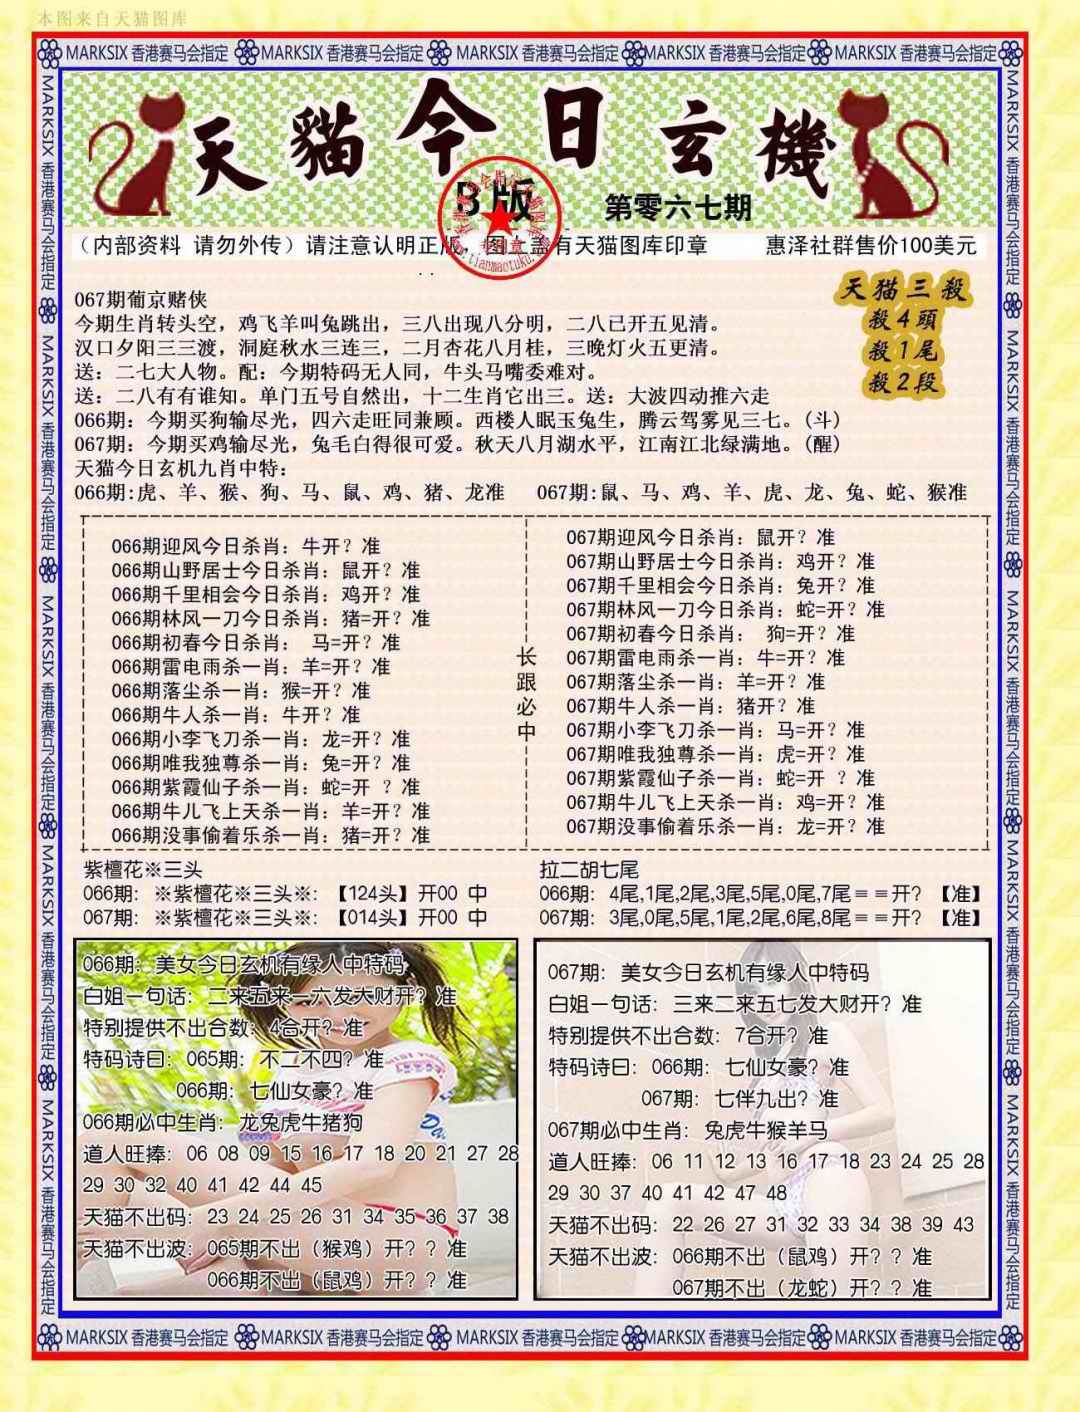 本图来自天猫图库
MARKSIX 香港赛马会指定 MARKSIX 香港赛马会指定 MARKSIX 香港赛马会指定 MARKSIX 香港赛马会指定 MARKSIX 香港赛马会指定
天貓今日玄機
B版
第零六七期
（内部资料 请勿外传）请注意认明正版，图上盖有天猫图库印章 惠泽社群售价100美元
天猫三殺
殺4頭
殺1尾
殺2段
067期葡京赌侠
今期生肖转头空，鸡飞羊叫兔跳出，三八出现八分明，二八已开五见清。
汉口夕阳三三渡，洞庭秋水三连三，二月杏花八月桂，三晚灯火五更清。
送：二七大人物。配：今期特码无人同，牛头马嘴委难对。
送：二八有有谁知。单门五号自然出，十二生肖它出三。送：大波四动推六走
066期：今期买狗输尽光，四六走旺同兼顾。西楼人眠玉兔生，腾云驾雾见三七。(斗)
067期：今期买鸡输尽光，兔毛白得很可爱。秋天八月湖水平，江南江北绿满地。(醒)
天猫今日玄机九肖中特：
066期:虎、羊、猴、狗、马、鼠、鸡、猪、龙准 067期:鼠、马、鸡、羊、虎、龙、兔、蛇、猴准
066期迎风今日杀肖：牛开？准
066期山野居士今日杀肖：鼠开？准
066期千里相会今日杀肖：鸡开？准
066期林风一刀今日杀肖：猪=开？准
066期初春今日杀肖： 马=开？准
066期雷电雨杀一肖：羊=开？准
066期落尘杀一肖：猴=开？准
066期牛人杀一肖：牛开？准
066期小李飞刀杀一肖：龙=开？准
066期唯我独尊杀一肖：兔=开？准
066期紫霞仙子杀一肖：蛇=开 ？准
066期牛儿飞上天杀一肖：羊=开？准
066期没事偷着乐杀一肖：猪=开？准
长跟必中
067期迎风今日杀肖：鼠开？准
067期山野居士今日杀肖：鸡开？准
067期千里相会今日杀肖：兔开？准
067期林风一刀今日杀肖：蛇=开？准
067期初春今日杀肖： 狗=开？准
067期雷电雨杀一肖：牛=开？准
067期落尘杀一肖：羊=开？准
067期牛人杀一肖：猪开？准
067期小李飞刀杀一肖：马=开？准
067期唯我独尊杀一肖：虎=开？准
067期紫霞仙子杀一肖：蛇=开 ？准
067期牛儿飞上天杀一肖：鸡=开？准
067期没事偷着乐杀一肖：龙=开？准
紫檀花※三头
066期：※紫檀花※三头※：【124头】开00 中
067期：※紫檀花※三头※：【014头】开00 中
拉二胡七尾
066期：4尾,1尾,2尾,3尾,5尾,0尾,7尾＝＝开？【准】
067期：3尾,0尾,5尾,1尾,2尾,6尾,8尾＝＝开？【准】
066期：美女今日玄机有缘人中特码
白姐一句话：二来五来一六发大财开？准
特别提供不出合数：4合开？准
特码诗曰：065期：不二不四？准
066期：七仙女豪？准
066期必中生肖：龙兔虎牛猪狗
道人旺捧：06 08 09 15 16 17 18 20 21 27 28
29 30 32 40 41 42 44 45
天猫不出码：23 24 25 26 31 34 35 36 37 38
天猫不出波：065期不出（猴鸡）开？？准
066期不出（鼠鸡）开？？准
067期：美女今日玄机有缘人中特码
白姐一句话：三来二来五七发大财开？准
特别提供不出合数：7合开？准
特码诗曰：066期：七仙女豪？准
067期：七伴九出？准
067期必中生肖：兔虎牛猴羊马
道人旺捧：06 11 12 13 16 17 18 23 24 25 28
29 30 37 40 41 42 47 48
天猫不出码：22 26 27 31 32 33 34 38 39 43
天猫不出波：066期不出（鼠鸡）开？？准
067期不出（龙蛇）开？？准
MARKSIX 香港赛马会指定 MARKSIX 香港赛马会指定 MARKSIX 香港赛马会指定 MARKSIX 香港赛马会指定 MARKSIX 香港赛马会指定